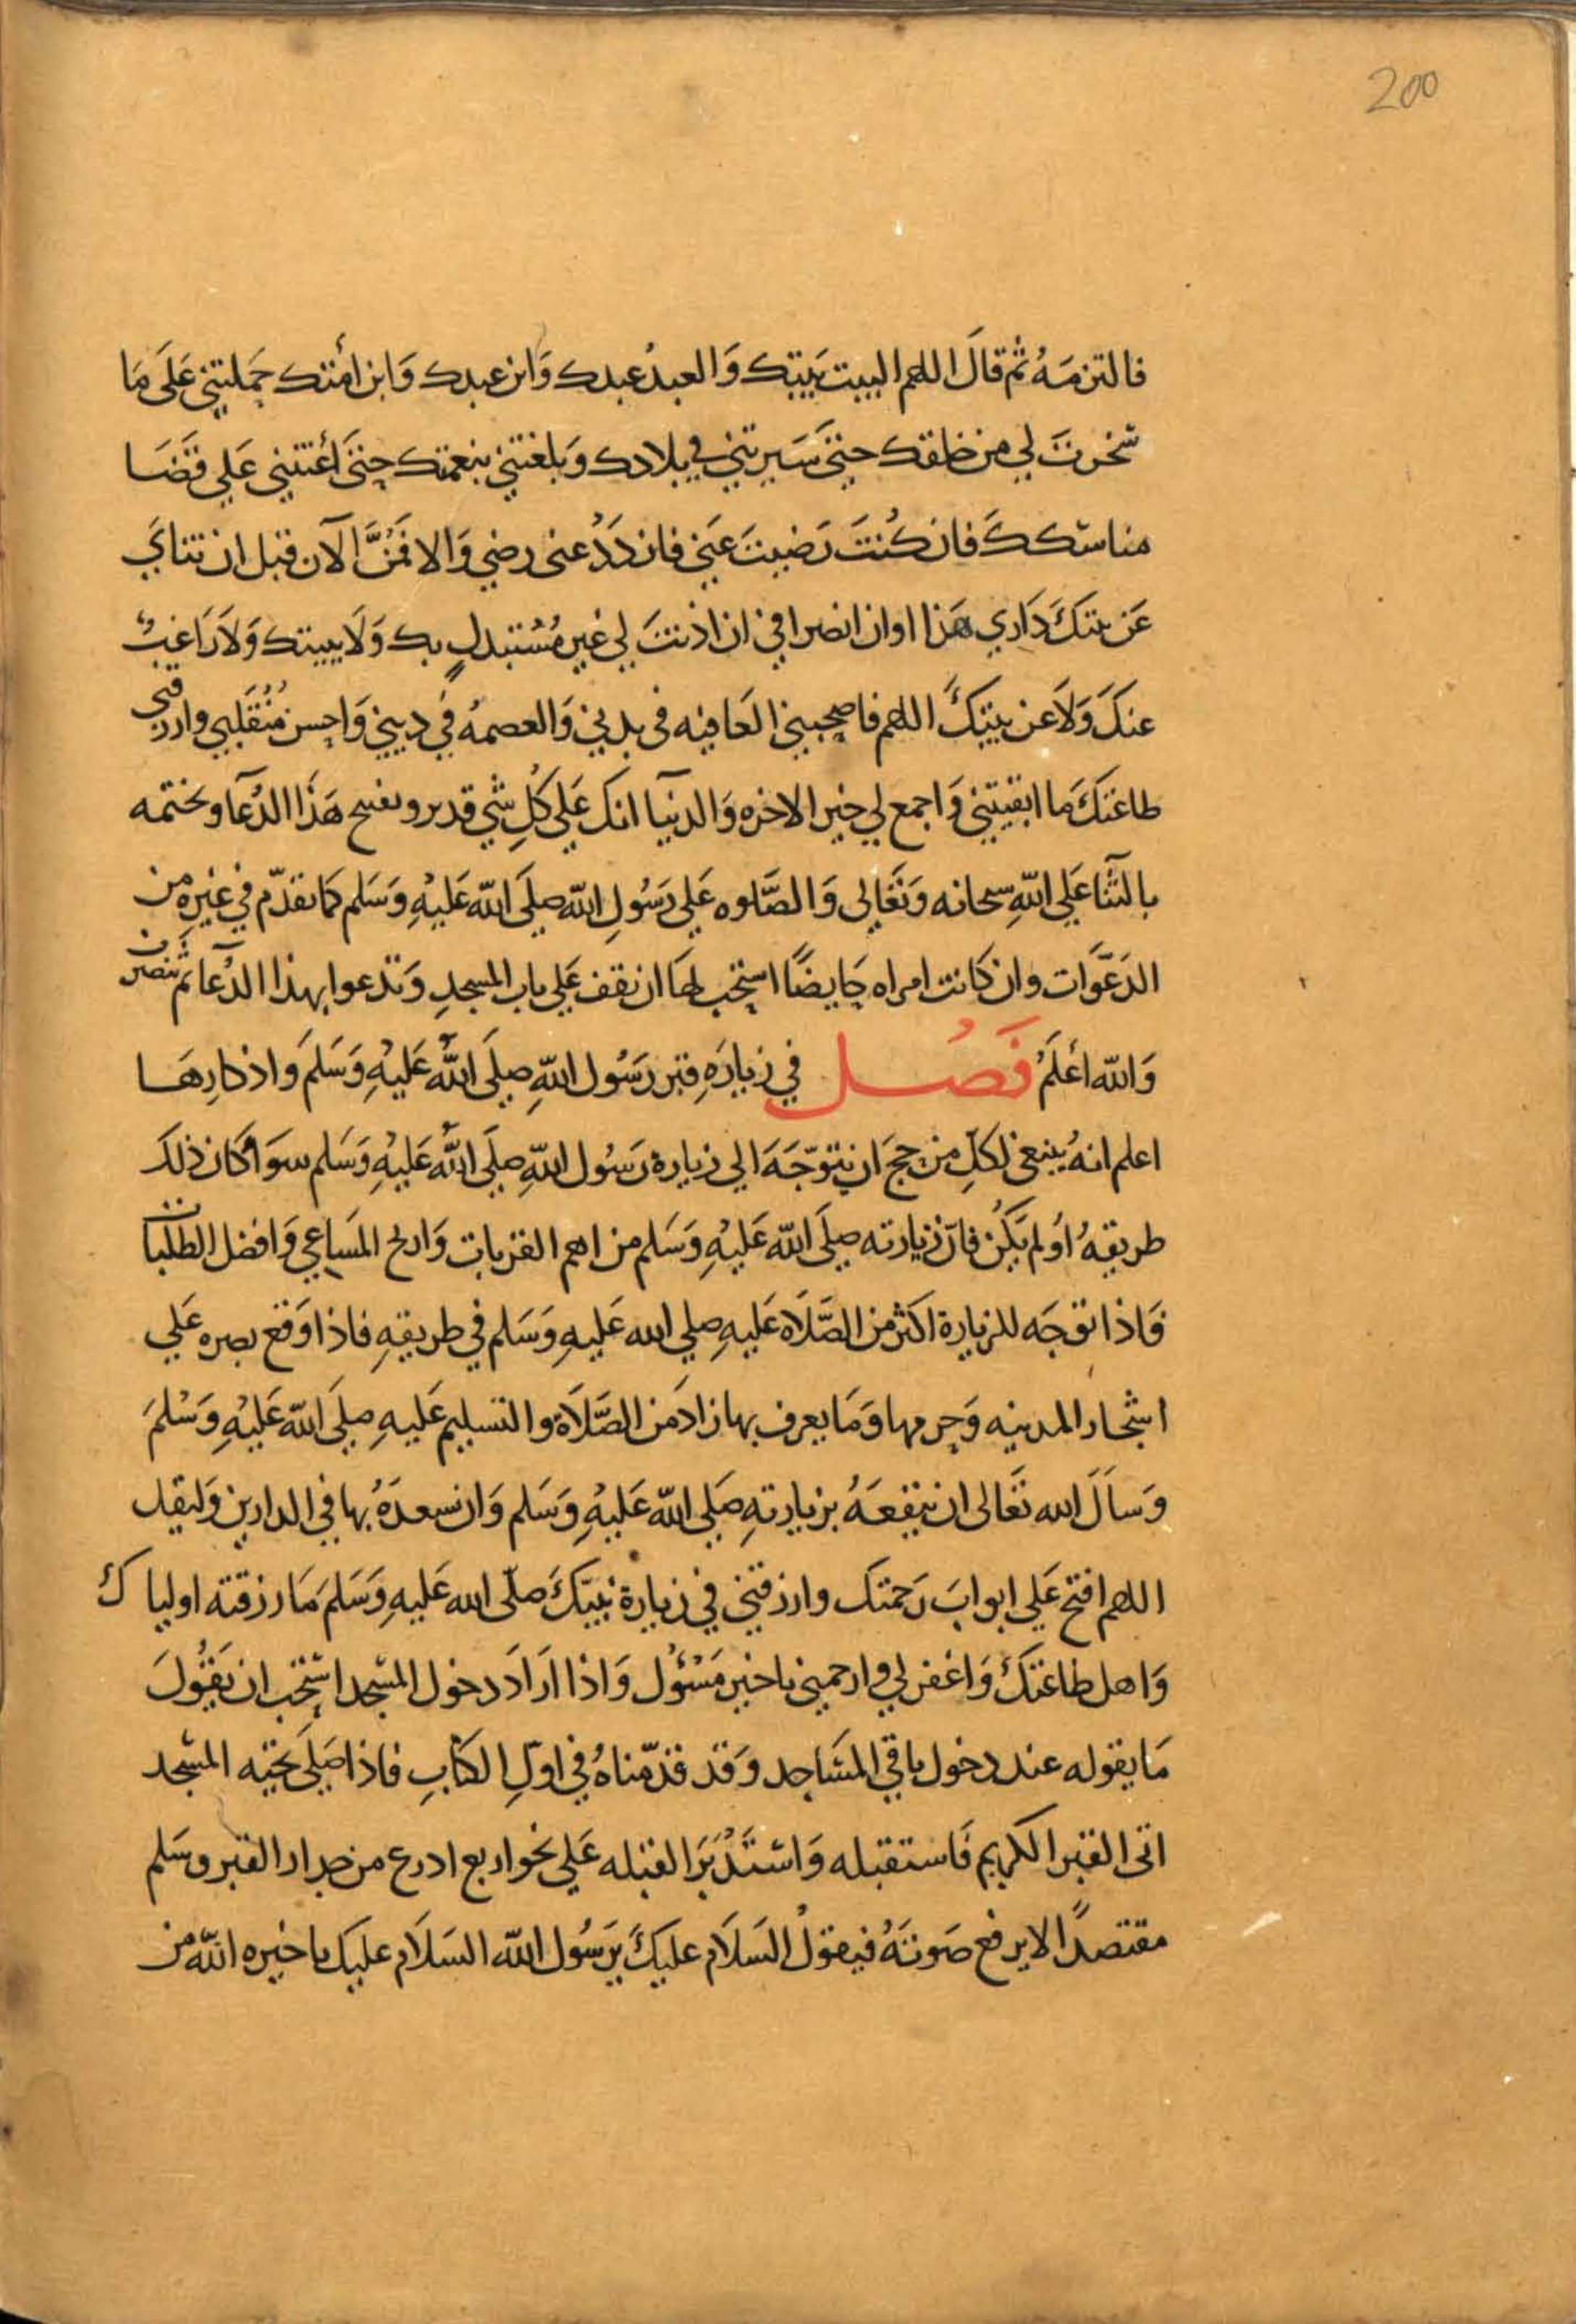 200
فالتزمَهُ ثم قالَ اللهم البيت بَيتك وَالعبدُ عبدك وَابن عبدك وَابن امَتك حَملتني عَلَى مَا
سَخرتَ لي من خلقك حتى سَيرتني في بلادك وَبلغتني بنعمتك حتى أعَنتني عَلى قَضَا
مناسكك فان كُنتَ رَضيتَ عَني فازدَدْ عنى رضي وَالا فَمُنَّ الآن قبل ان تناي
عَن بيتكَ دَاري هَذا اوان انصرافي ان اذنتَ لي غير مُسْتبدلٍ بك وَلَا ببيتك وَلَا رَاغبٌ
عنكَ وَلَا عن بيتكَ اللهم فاصحبني العَافيه في بدني وَالعصمهُ في ديني وَاحسن مُنْقَلبي وارزقني
طاعَتكَ مَا ابقيتني وَاجمع لي خير الاخره وَالدنيآ انك عَلى كُلِ شي قدير ويفتح هَذا الدُعآ ويختمه
بالثَنا عَلى اللهِ سبحانه وَتَعَالى وَالصَّلوه عَلى رَسُولِ الله صلى الله عَليْهِ وَسَلم كمَا تقدّم في غيرِه من
الدَعَوَات وان كانت امراه حَايضًا استحَب لهَا ان تقف عَلى باب المسجدِ وَتدعوا بهذا الدُعآ ثم تنصرف
وَالله اعْلَمُ فَصْل في زيارَهِ قبر رَسُول اللهِ صلى اللهُ عَليْهِ وَسَلمَ واذكارِهَا
اعلم انهُ ينبغى لكلِ من حَج ان يتوَجَهَ الي زيارة رَسُول اللهِ صلى اللهُ عَليْهِ وَسَلم سوَا كَان ذلك
طريقهُ اوْ لم يَكُن فانّ زيارته صلى الله عَليْهِ وَسَلم من اهم القربات وَاربح المسَاعي وَافضل الطَلَبات
فَاذا توجَه للزيارة اكثر من الصَّلاه عَليهِ صلي الله عَليهِ وَسَلم في طريقهِ فاذا وَقع بصره عَلى
اشجار المدينه وَحرمها وَمَا يعرف بها زادَ من الصَّلَاة والتسليم عَليهِ صلى الله عَليْهِ وَسْلمَ
وَسَالَ الله تعَالى ان ينفعَهُ بزيارتهِ صَلى الله عَليْهِ وَسَلم وَان يسعدَهُ بها في الدارين وَليقل
اللهم افتح عَلى ابوابَ رَحمتك وارزقني في زيارة نبيّكَ صلّى الله عَليهِ وَسَلمَ مَا رزقته اولياك
وَاهل طاعَتكَ وَاغفر لي وارحمني ياخير مَسْؤُل وَاذا ارَادَ دخول المسْجد استحَب ان يَقُولَ
مَا يقوله عند دخول باقي المسَاجد وَقد قدّمناهُ في اولِ الكتابِ فاذا صَلى تحيه المسْجد
اتى القبر الكريم فَاستقبله وَاسْتَدْبَرَ القبله عَلى نحو اربع اذرع من جدار القبر وسَلم
مقتصدًا لا يرفع صَوتَهُ فيقولُ السَلَام عليكَ يرَسُول الله السَلَام عليك ياخيره الله من